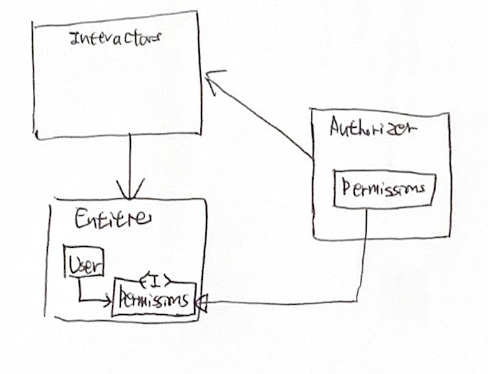 Interactors
Authorizer
Permissions
Entities
User
<I>
Permissions